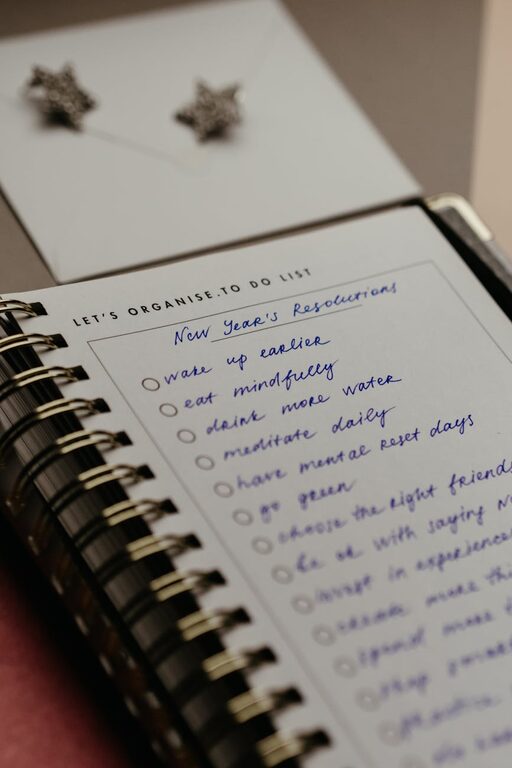 LET'S ORGANISE. TO DO LIST
New Year's Resolutions
wake up earlier
eat mindfully
drink more water
meditate daily
have mental reset days
go green
choose the right friends
be ok with saying no
invest in experiences
create more
spend more
stop
practice